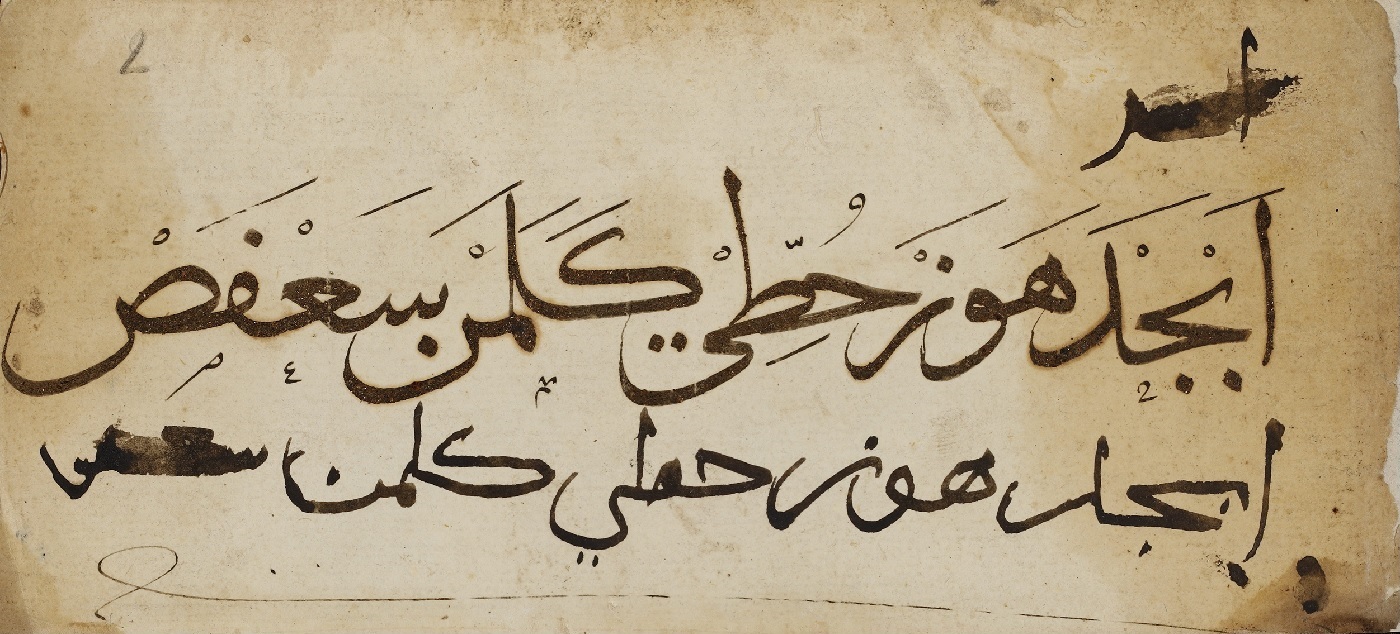 اَبْجَدْ هَوَزْ حُطِّيْ كَلَمَنْ سَعْفَصْ
ابجد هوز حطي كلمن سعفص